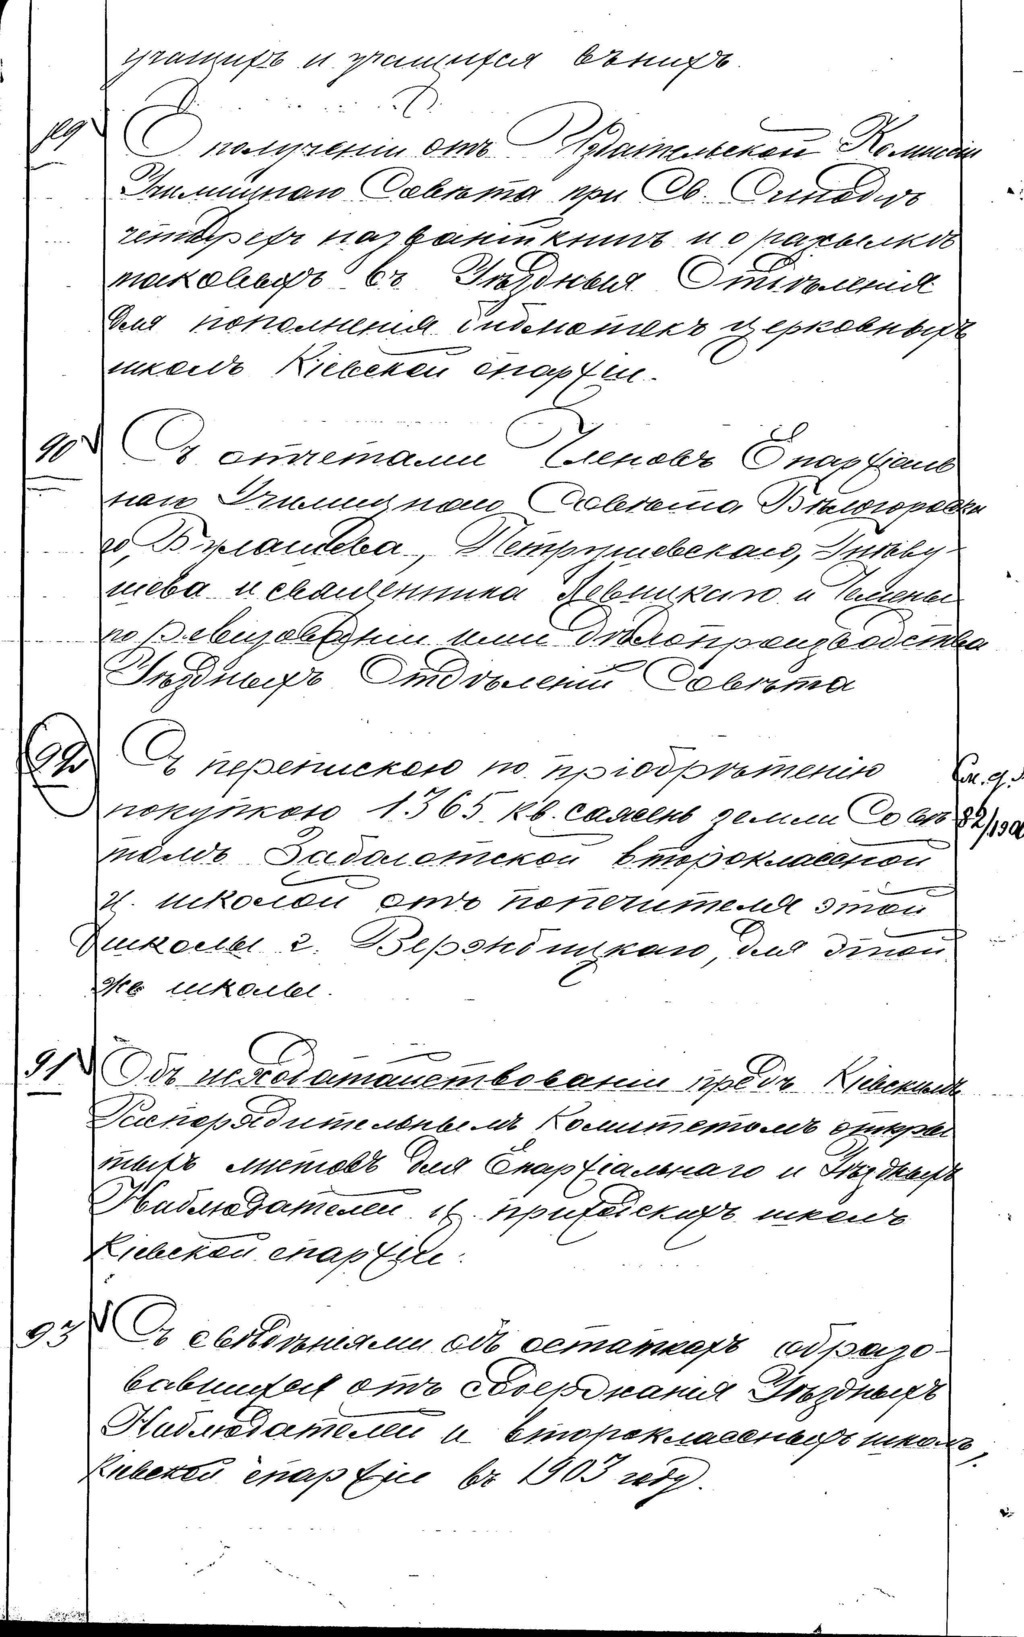 учащихъ и учащихся въ нихъ.
89 О полученіи отъ Издательской Комиссіи
Училищнаго Совѣта при Св. Синодѣ
четырехъ названій книгъ и о разсылкѣ
таковыхъ въ Уѣздныя Отдѣленія
для пополненія библіотекъ церковныхъ
школъ Кіевской епархіи.
90 Съ отчетами Членовъ Епархіаль
наго Училищнаго Совѣта Бѣлогородска
го, Булашева, Петрушевскаго,
шева и священника Левицкаго и
по ревизованіи ими дѣлопроизводства
Уѣздныхъ Отдѣленій Совѣта
92 Съ перепискою по пріобрѣтенію
покупкою 1365 кв. сажень земли Совѣ
томъ Заболотской второклассной
ц. школой отъ попечителя этой
школы г. Вержбицкаго, для этой
же школы.
См. д.
82/190
91 Объ исходатайствованіи предъ Кіевскимъ
Распорядительнымъ Комитетомъ откры
тыхъ листовъ для Епархіальнаго и Уѣздныхъ
Наблюдателей ц. приходскихъ школъ
Кіевской епархіи.
93 Съ свѣдѣніями объ остаткахъ образо-
вавшихся отъ содержанія Уѣздныхъ
Наблюдателей и второклассныхъ школъ,
Кіевской епархіи въ 1903 году.